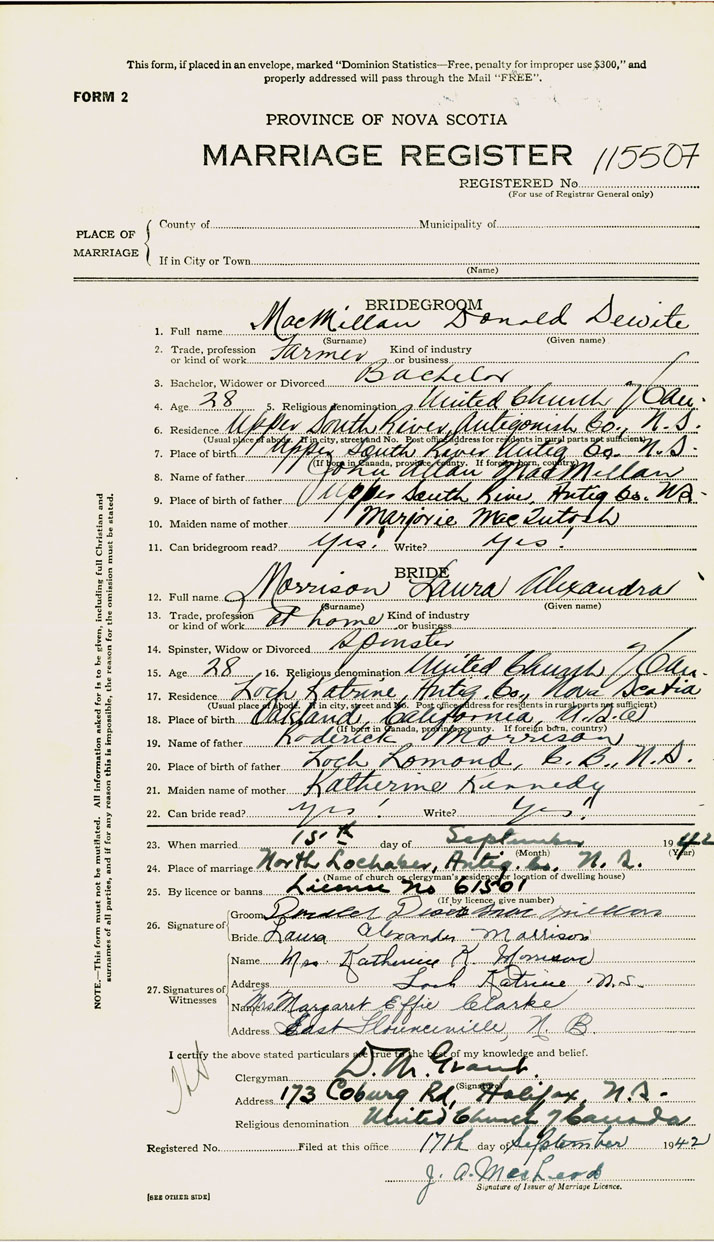 This form, if placed in an envelope, marked "Dominion Statistics—Free, penalty for improper use $300," and
properly addressed will pass through the Mail "FREE".
FORM 2
PROVINCE OF NOVA SCOTIA
MARRIAGE REGISTER 115507
REGISTERED No.
(For use of Registrar General only)
PLACE OF MARRIAGE
County of Municipality of
If in City or Town
(Name)
BRIDEGROOM
1. Full name MacMillan Donald Dewite
(Surname) (Given name)
2. Trade, profession or kind of work Farmer Kind of industry or business
3. Bachelor, Widower or Divorced Bachelor
4. Age 28 5. Religious denomination United Church of Can.
6. Residence Upper South River, Antigonish Co., N.S.
(Usual place of abode. If in city, street and No. Post office address for residents in rural parts not sufficient)
7. Place of birth Upper South River Antig Co. N.S.
(If born in Canada, province, county. If foreign born, country)
8. Name of father John Allan MacMillan
9. Place of birth of father Upper South River, Antig Co. N.S.
10. Maiden name of mother Marjorie MacIntosh
11. Can bridegroom read? Yes! Write? Yes!
BRIDE
12. Full name Morrison Laura Alexandra
(Surname) (Given name)
13. Trade, profession or kind of work at home Kind of industry or business
14. Spinster, Widow or Divorced Spinster
15. Age 28 16. Religious denomination United Church of Can.
17. Residence Loch Katrine, Antig. Co., Nova Scotia
(Usual place of abode. If in city, street and No. Post office address for residents in rural parts not sufficient)
18. Place of birth Oakland, California, U.S.A
(If born in Canada, province, county. If foreign born, country)
19. Name of father Roderick Morrison
20. Place of birth of father Loch Lomond, C.B., N.S.
21. Maiden name of mother Katherine Kennedy
22. Can bride read? Yes! Write? Yes!
23. When married 15th day of September 1942
(Month) (Year)
24. Place of marriage North Lochaber, Antig. Co., N.S.
(Name of church or clergyman's residence or location of dwelling house)
25. By licence or banns License No 61501
(If by licence, give number)
26. Signature of
Groom Donald
Bride Laura Alexander Morrison
27. Signatures of Witnesses
Name Mrs Katherine K. Morrison
Address Loch Katrine N.S.
Name Mrs Margaret Effie Clarke
Address East Florenceville, N.B.
I certify the above stated particulars are true to the best of my knowledge and belief.
Clergyman D. M. Grant
(Signature)
Address 173 Coburg Rd, Halifax, N.S.
Religious denomination United Church of Canada
Registered No. Filed at this office 17th day of September 1942
J. A. MacLeod
Signature of Issuer of Marriage Licence.
[SEE OTHER SIDE]
NOTE.—This form must not be mutilated. All information asked for is to be given, including full Christian and
surnames of all parties, and if for any reason this is impossible, the reason for the omission must be stated.